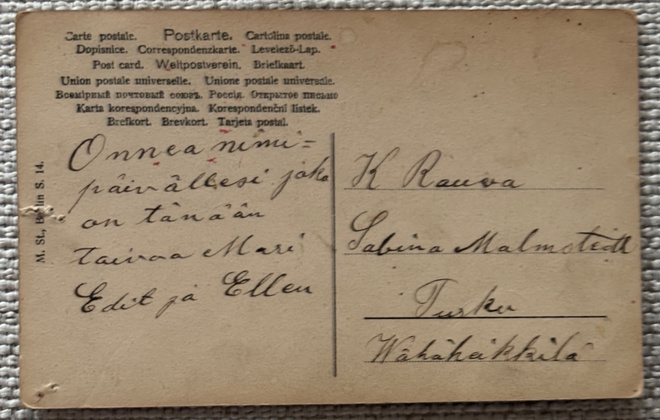 Carte postale. Postkarte. Cartolina postale.
Dopisnice. Correspondenzkarte. Levelező-Lap.
Post card. Weltpostverein. Briefkaart.
Union postale universelle. Unione postale universale.
Всемірный почтовый союзъ. Россія. Открытое письмо
Karta korespondencyjna. Korespondenční lístek.
Brefkort. Brevkort. Tarjeta postal.
Onnea nimi=
päivällesi joka
on tänään
toivoo Mari
Edit ja Ellen
M. St., Berlin S. 14.
K Rauva
Sabina Malmstedt
Turku
Wähäheikkilä